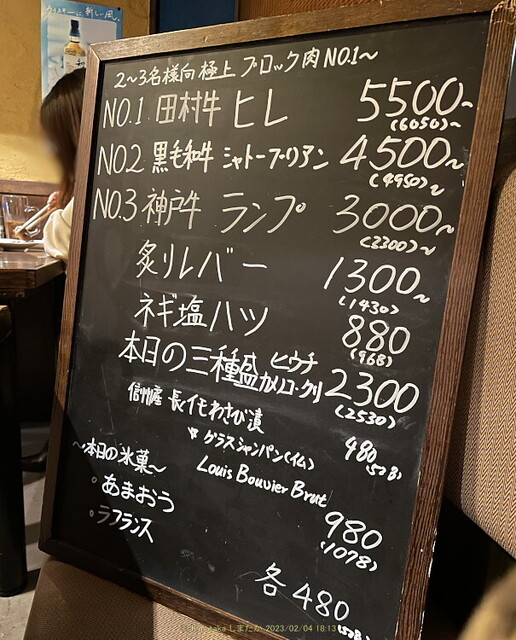 2〜3名様向 極上 ブロック肉 NO.1〜
NO.1 田村牛 ヒレ 5500〜
(6050)〜
NO.2 黒毛和牛 シャトーブリアン 4500〜
(4950)〜
NO.3 神戸牛 ランプ 3000〜
(3300)〜
炙りレバー 1300〜
(1430)
ネギ塩ハツ 880
(968)
本日の三種盛 ヒウチ カメノコ・クリ 2300
(2530)
信州産 長イモわさび漬 480
(528)
グラスシャンパン(イム)
Louis Bouvier Brut
980
(1078)
〜本日の氷菓〜
・あまおう
・ラフランス
各480
(528)
しまたか 2023/02/04 18:13